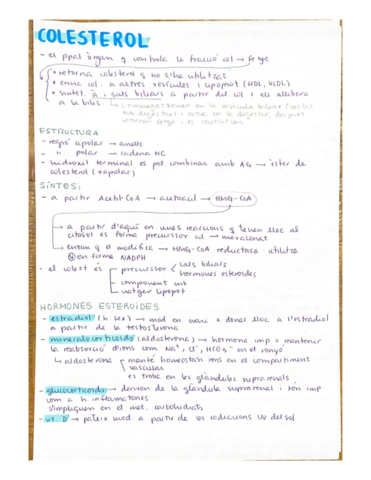 COLESTEROL
- el ppal òrgan q controla la fració col → fetge
• retorna colesterol q no s'ha utilitzat
• envia col a altres vesícules i lipoprot (HDL, VLDL)
• sintet. à. sals biliars a partir del col i els allibera
a la bilis
↳ s'emmagatzemen en la vesícula biliar cap al
tub digestiu i actua en la digestió, després
retornen fetge i es reutilitzen
ESTRUCTURA
- regió apolar → anells
- " polar → cadena HC
- hidroxil terminal es pot combinar amb AG → èster de
colesterol (+ apolar)
SÍNTESI
- a partir Acetil-CoA → acetoacil → HMG-CoA
→ a partir d'aquí en unes reaccions q tenen lloc al
citosol es forma precursor col → mevalonat
→ enzim q el modifica → HMG-CoA reductasa: utilitza
en forma NADPH
- el colest és precursor sals biliars
hormones esteroides
component mb
viatger lipoprot
HORMONES ESTEROIDES
- estradiol (h sex) → mod en ovari x donar lloc a l'estradiol
a partir de la testosterona
- mineralocorticoids (aldosterona) → hormona imp x mantenir
la reabsorció d'ions com Na⁺, Cl⁻, HCO₃⁻ en el ronyó
↳ aldosterona manté homeostàsi ions en el compartiment
vascular
es troba en les glàndules suprarenals
- glucocorticoids → deriven de la glàndula suprarenal i són imp
com a h inflamatones
s'impliquen en el met. carbohidrats
- vit D → pateix mod a partir de les radiacions UV del sol